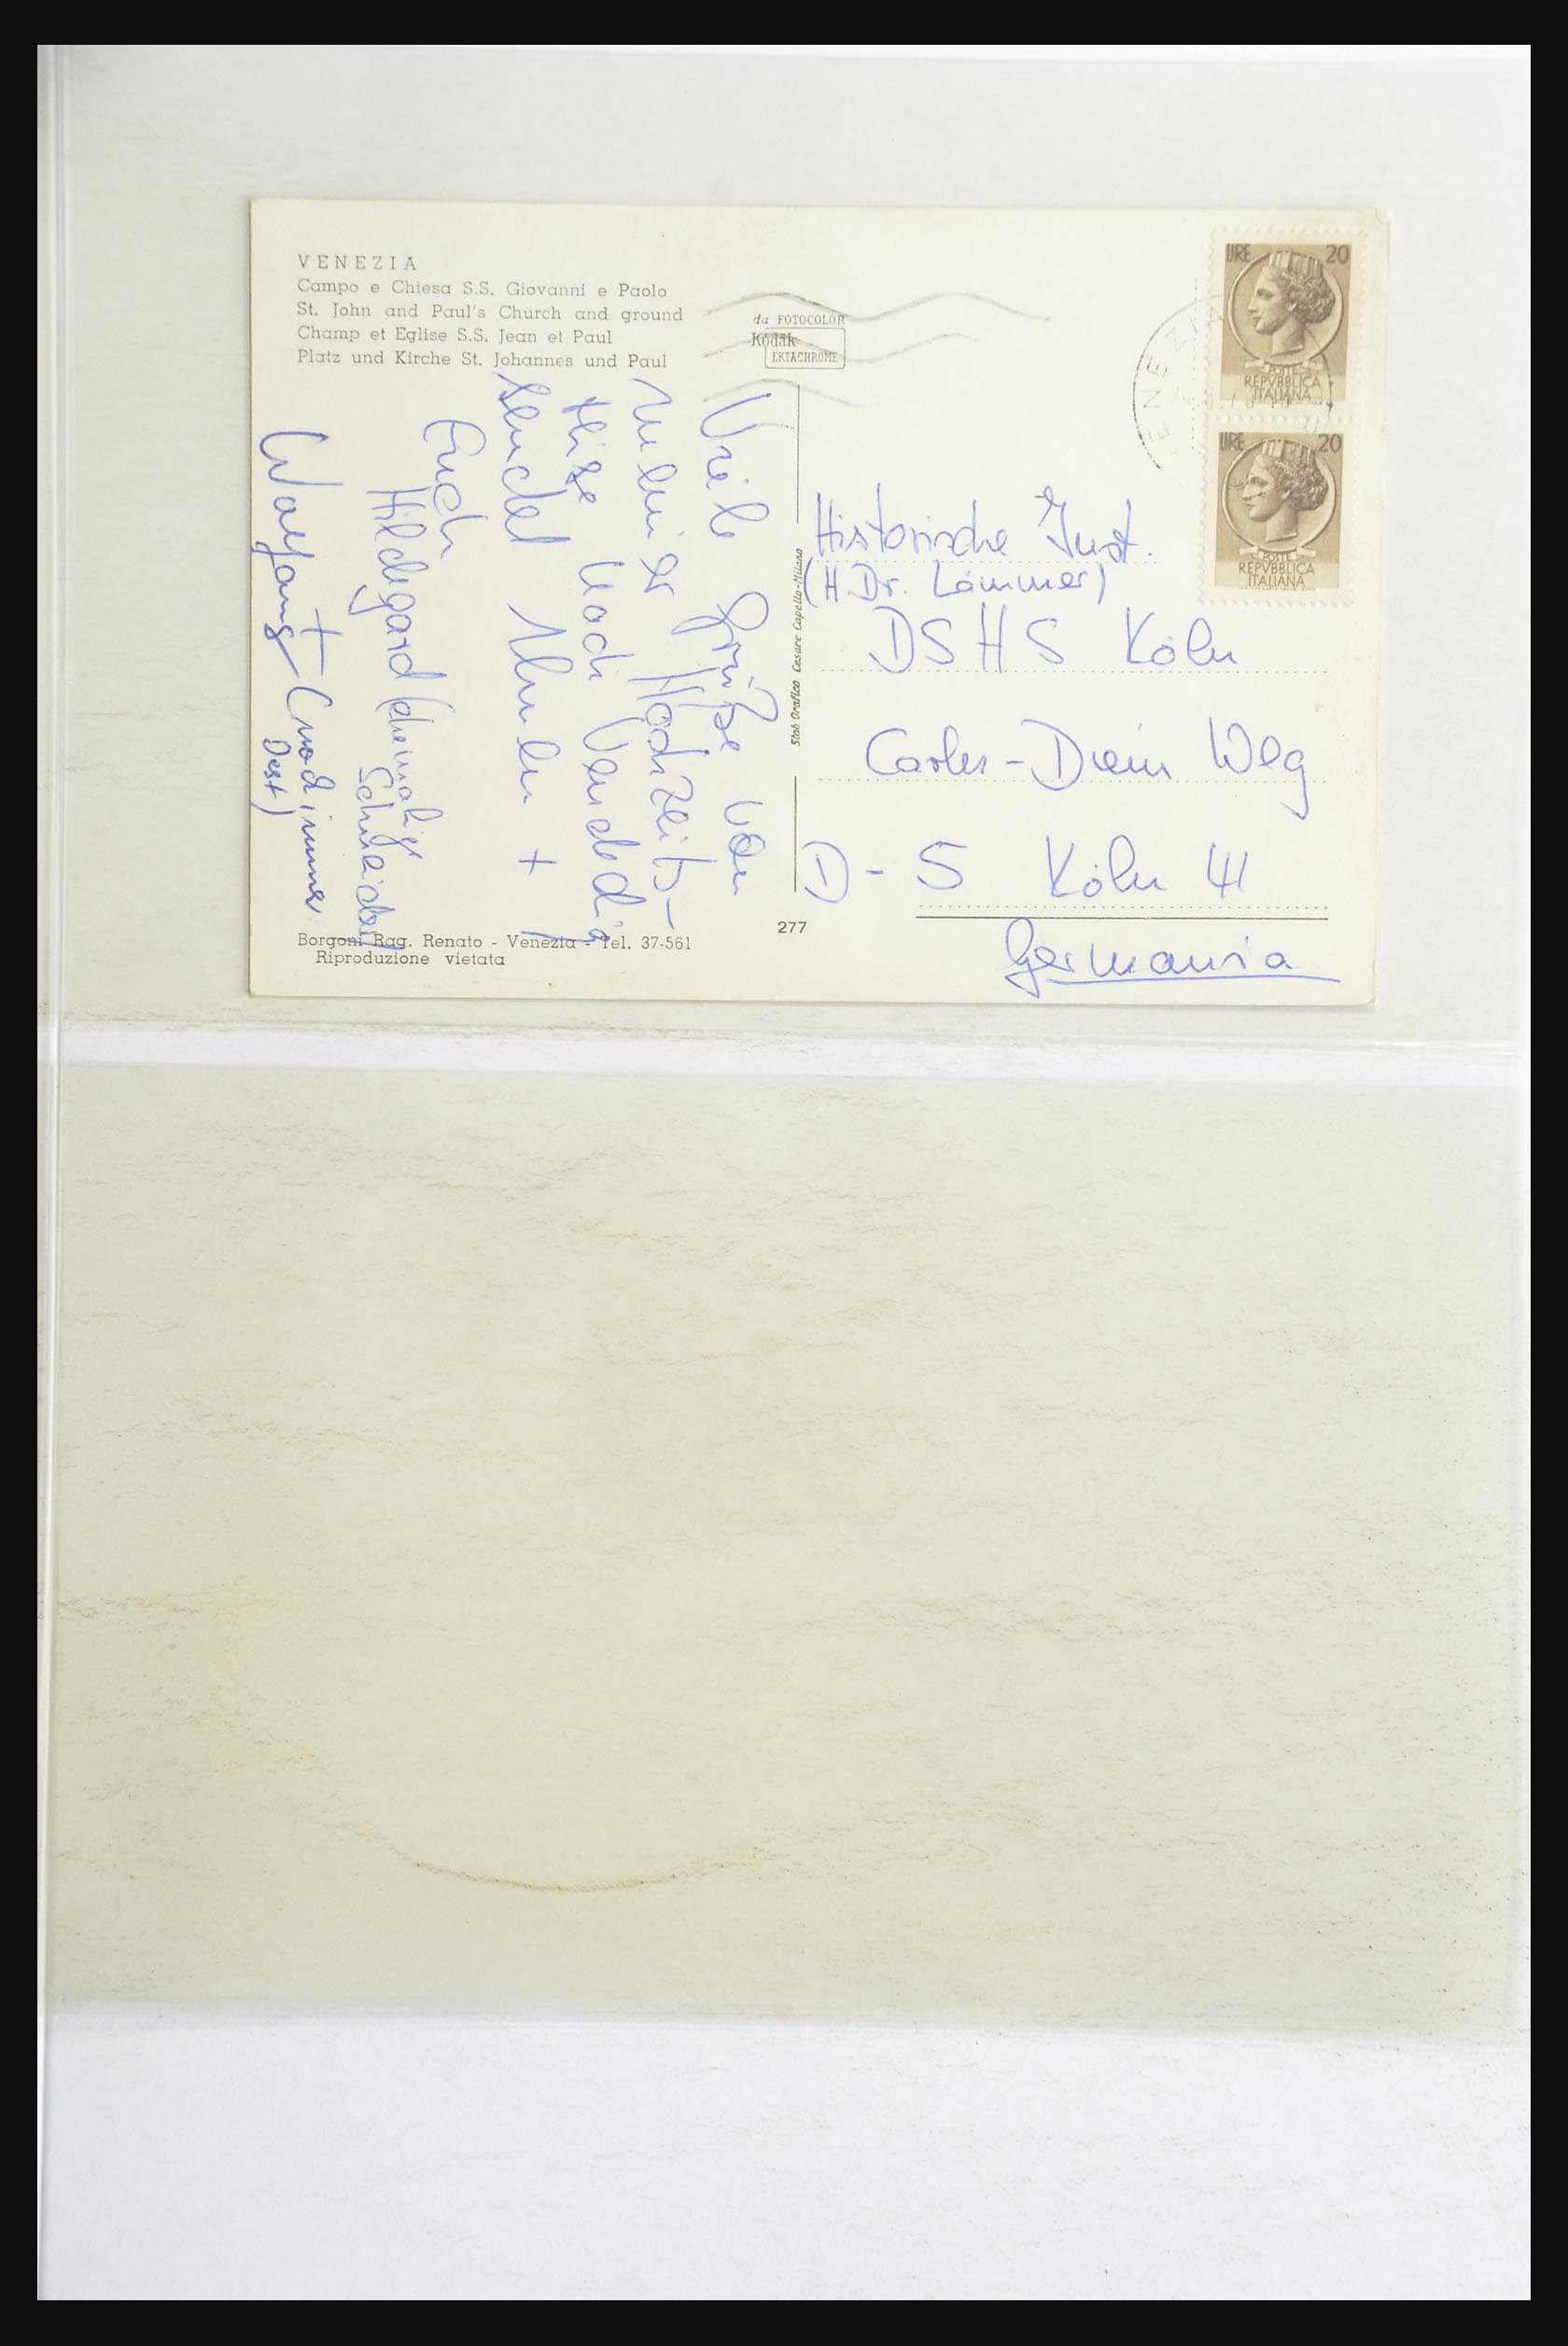 VENEZIA
Campo e Chiesa S.S. Giovanni e Paolo
St. John and Paul's Church and ground
Champ et Eglise S.S. Jean et Paul
Platz und Kirche St. Johannes und Paul
da FOTOCOLOR
Kodak
EKTACHROME
VENEZIA
LIRE 20
POSTE
REPVBBLICA
ITALIANA
LIRE 20
POSTE
REPVBBLICA
ITALIANA
Viele Grüße von
meiner Hochzeits-
reise nach Venedig
sendet Ihnen +
Euch
Hildegard (ehemalige
Schneider)
Wolfgang +
Stab. Grafico Cesare Capello-Milano
Historische Inst.
(H Dr. Lämmer)
DSHS Köln
Carler-Diem Weg
D-5 Köln 41
Germania
277
Borgoni Rag. Renato - Venezia - Tel. 37-561
Riproduzione vietata